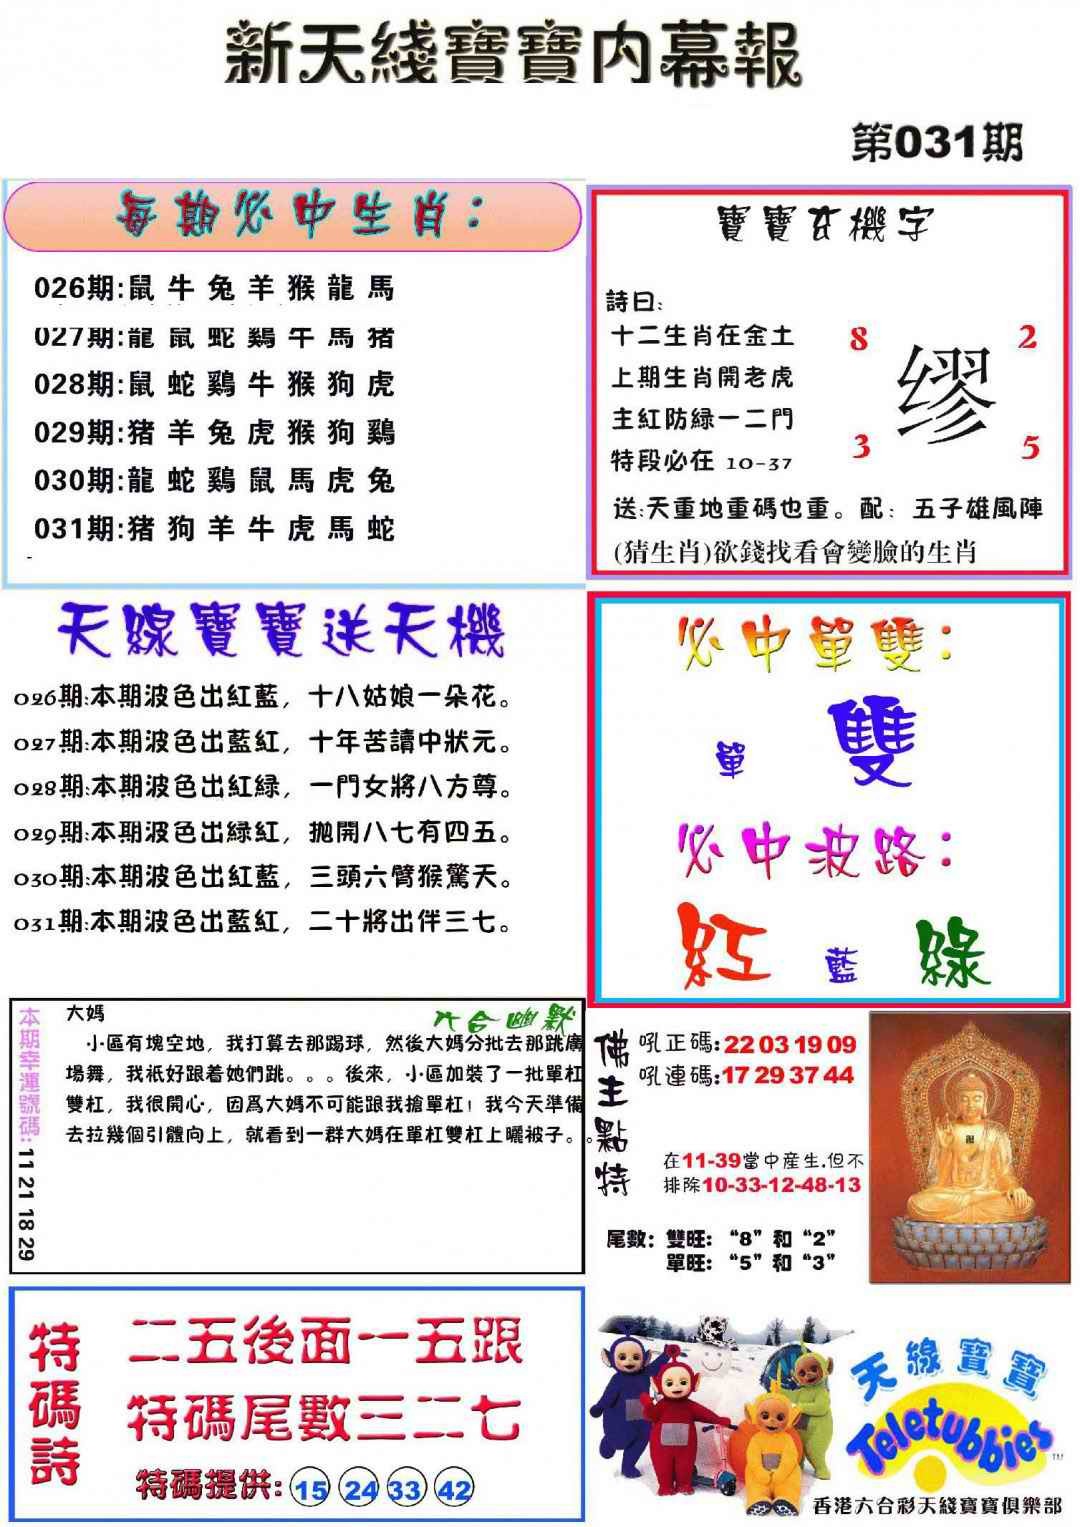 新天綫寶寶内幕報
第031期
每期必中生肖：
026期:鼠 牛 兔 羊 猴 龍 馬
027期:龍 鼠 蛇 鷄 牛 馬 猪
028期:鼠 蛇 鷄 牛 猴 狗 虎
029期:猪 羊 兔 虎 猴 狗 鷄
030期:龍 蛇 鷄 鼠 馬 虎 兔
031期:猪 狗 羊 牛 虎 馬 蛇
寶寶玄機字
詩曰:
十二生肖在金土
上期生肖開老虎
主紅防緑一二門
特段必在 10-37
8
2
缪
3
5
送:天重地重碼也重。配：五子雄風陣
(猜生肖)欲錢找看會變臉的生肖
天線寶寶送天機
026期:本期波色出紅藍，十八姑娘一朵花。
027期:本期波色出藍紅，十年苦讀中狀元。
028期:本期波色出紅緑，一門女將八方尊。
029期:本期波色出緑紅，抛開八七有四五。
030期:本期波色出紅藍，三頭六臂猴驚天。
031期:本期波色出藍紅，二十將出伴三七。
必中單雙：
單 雙
必中波路：
紅 藍 綠
本期幸運號碼:11 21 18 29
六合幽默
大媽
小區有塊空地，我打算去那踢球，然後大媽分批去那跳廣
場舞，我衹好跟着她們跳。。。後來，小區加裝了一批單杠
雙杠，我很開心，因爲大媽不可能跟我搶單杠！我今天準備
去拉幾個引體向上，就看到一群大媽在單杠雙杠上曬被子。。
佛主點特
吼正碼:22 03 19 09
吼連碼:17 29 37 44
在11-39當中産生.但不
排除10-33-12-48-13
尾數：雙旺：“8”和“2”
單旺：“5”和“3”
特碼詩
二五後面一五跟
特碼尾數三二七
特碼提供: 15 24 33 42
天線寶寶
Teletubbies
TM
香港六合彩天綫寶寶俱樂部